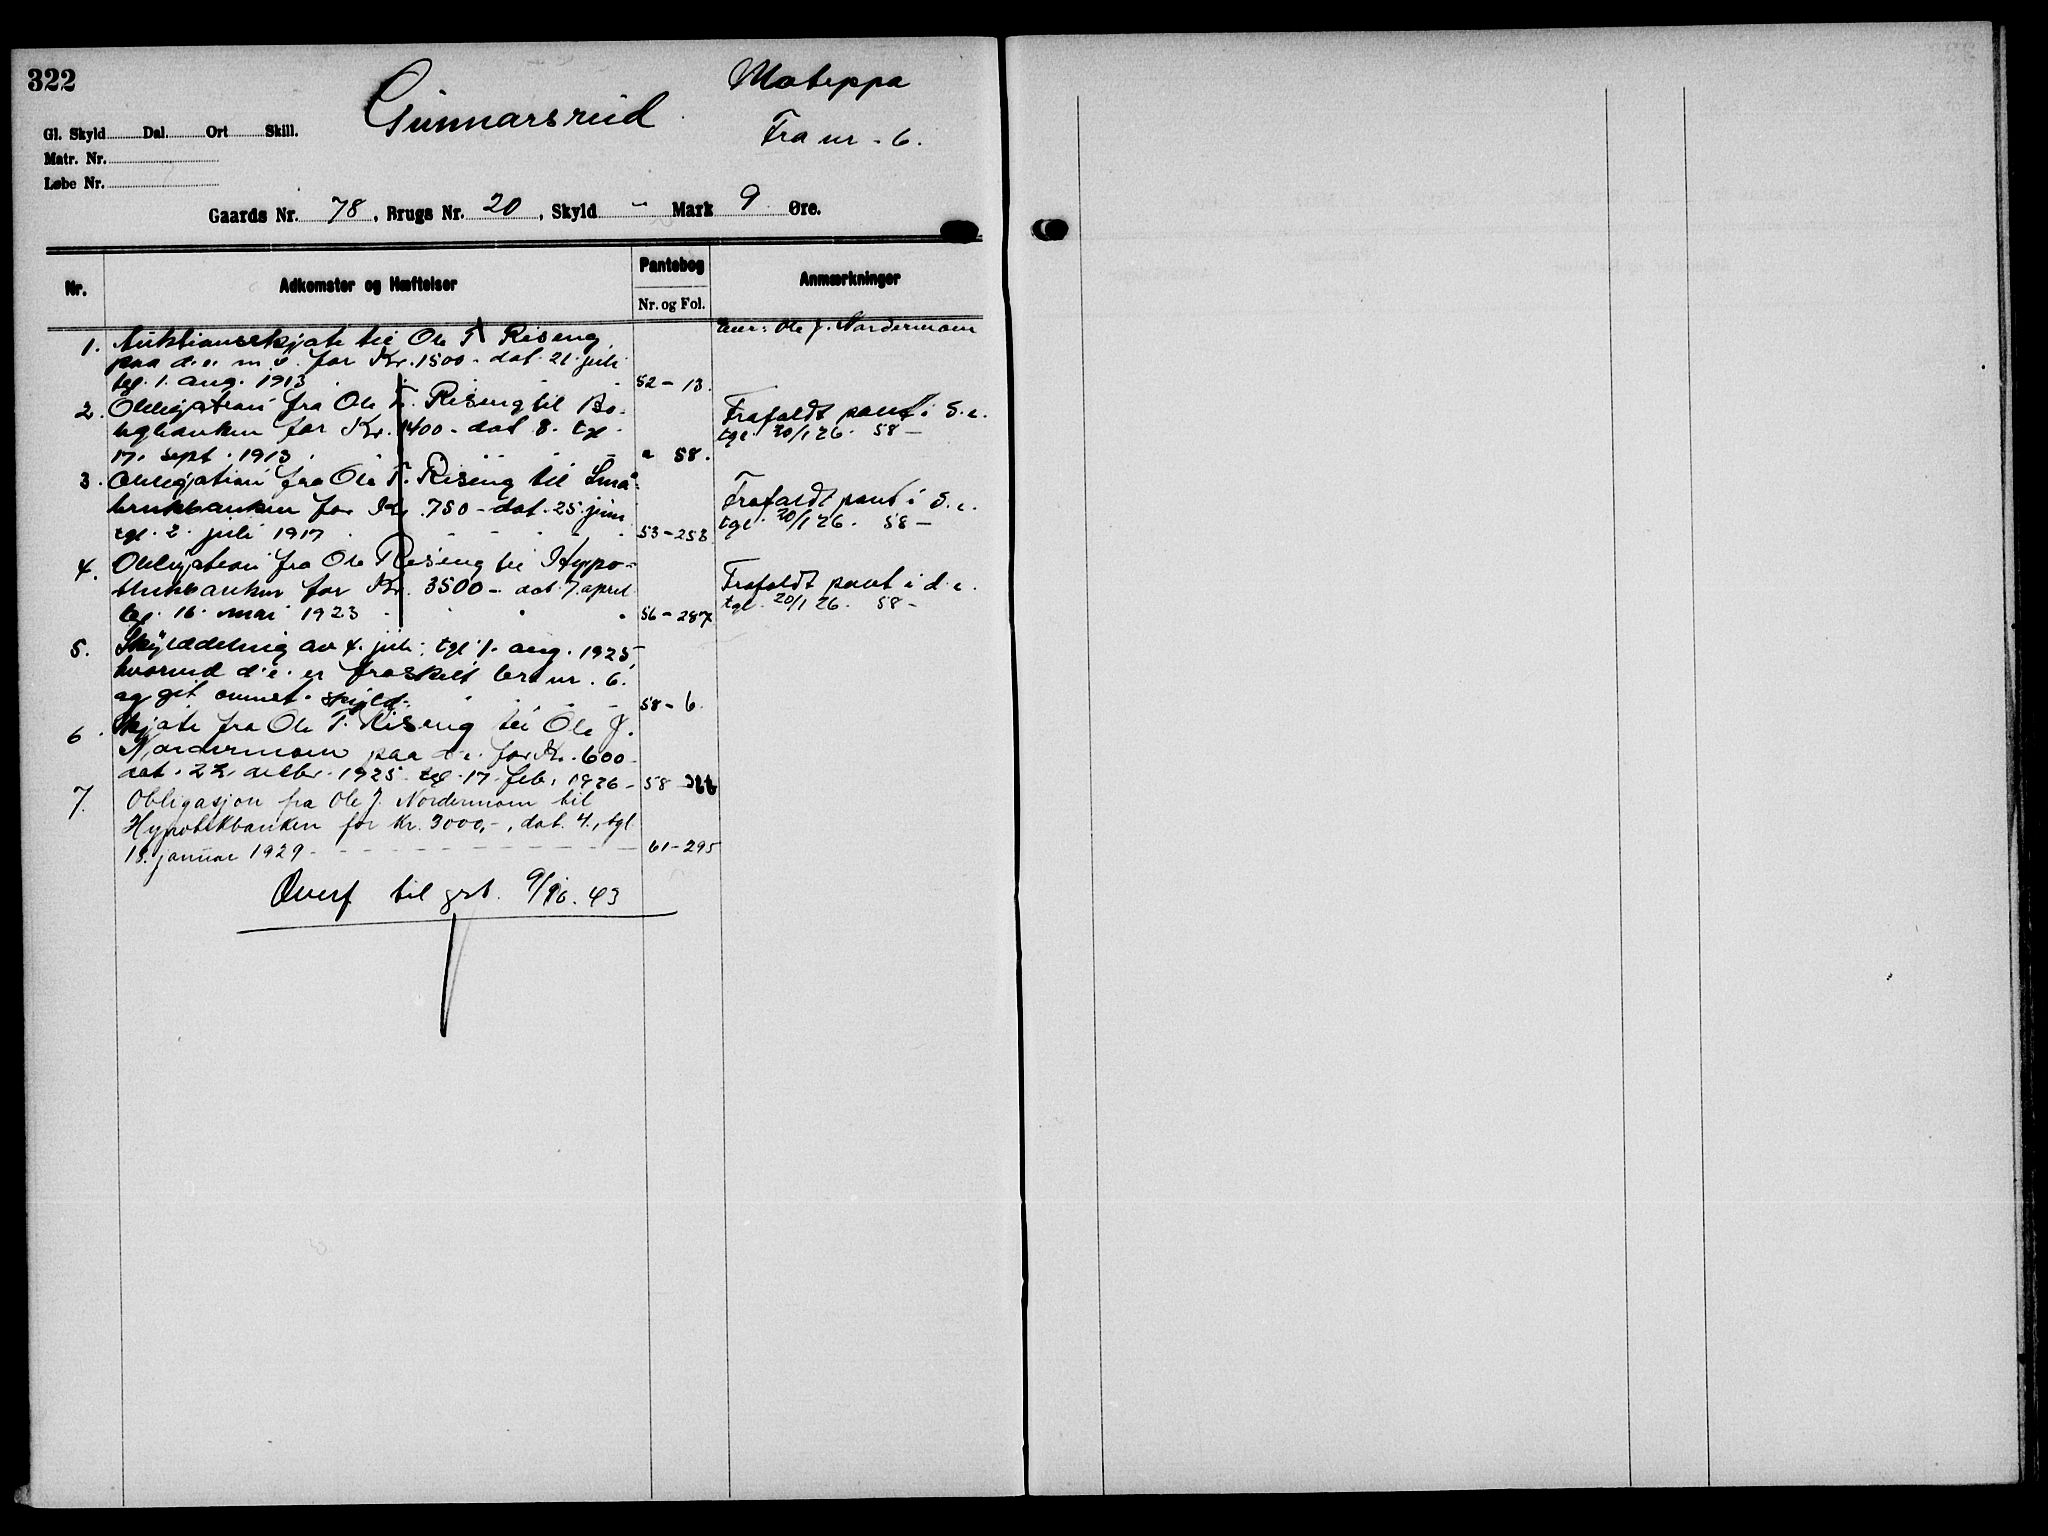 322
Gunnarsrud
Moteppa
Fra nr - 6.
Gl. Skyld Dal. Ort Skill.
Matr. Nr.
Løbe Nr.
Gaards Nr. 78, Brugs Nr. 20, Skyld - Mark 9 Øre.
Nr.
Adkomster og Hæftelser
Pantebog
Nr. og Fol.
Anmærkninger
1. Auktionsskjøte til Ole T. Riseng
Eier: Ole J. Nordermoen
paa d.e. m.v. for Kr. 1500 - dat. 21 juli
tgl. 1. aug. 1913 52 - 13.
2. Obligation fra Ole T. Riseng til Bo-
ligbanken for Kr. 1400 - dat 8. tgl
17. sept. 1913 " 58.
Frafaldt pant i d.e.
tgl. 20/1 26. 58 -
3. Obligation fra Ole T. Riseng til Små-
brukbanken for Kr. 750 - dat. 25. juni
tgl. 2. juli 1917 53 - 258
Frafaldt pant i d.e.
tgl. 20/1 26. 58 -
4. Obligation fra Ole Riseng til Hypo-
tekbanken for Kr. 3500 - dat 7. april
tgl. 16. mai 1923 56 - 287
Frafaldt pant i d.e.
tgl. 20/1 26. 58 -
5. Skylddeling av 4. juli, tgl 1. aug. 1925,
hvorved d.e. er fraskilt br. nr. 6.
og git ovennt. skyld. 58 - 6.
6. Skjøte fra Ole T. Riseng til Ole J.
Nordermoen paa d.e. for Kr. 600
dat. 22. decbr. 1925 tgl. 17. feb. 1926 - 58
7. Obligasjon fra Ole J. Nordermoen til
Hypotekbanken for kr. 3000,-, dat. 4., tgl.
18. januar 1929 - 61 - 295
Overf til grb. 9/10. 43